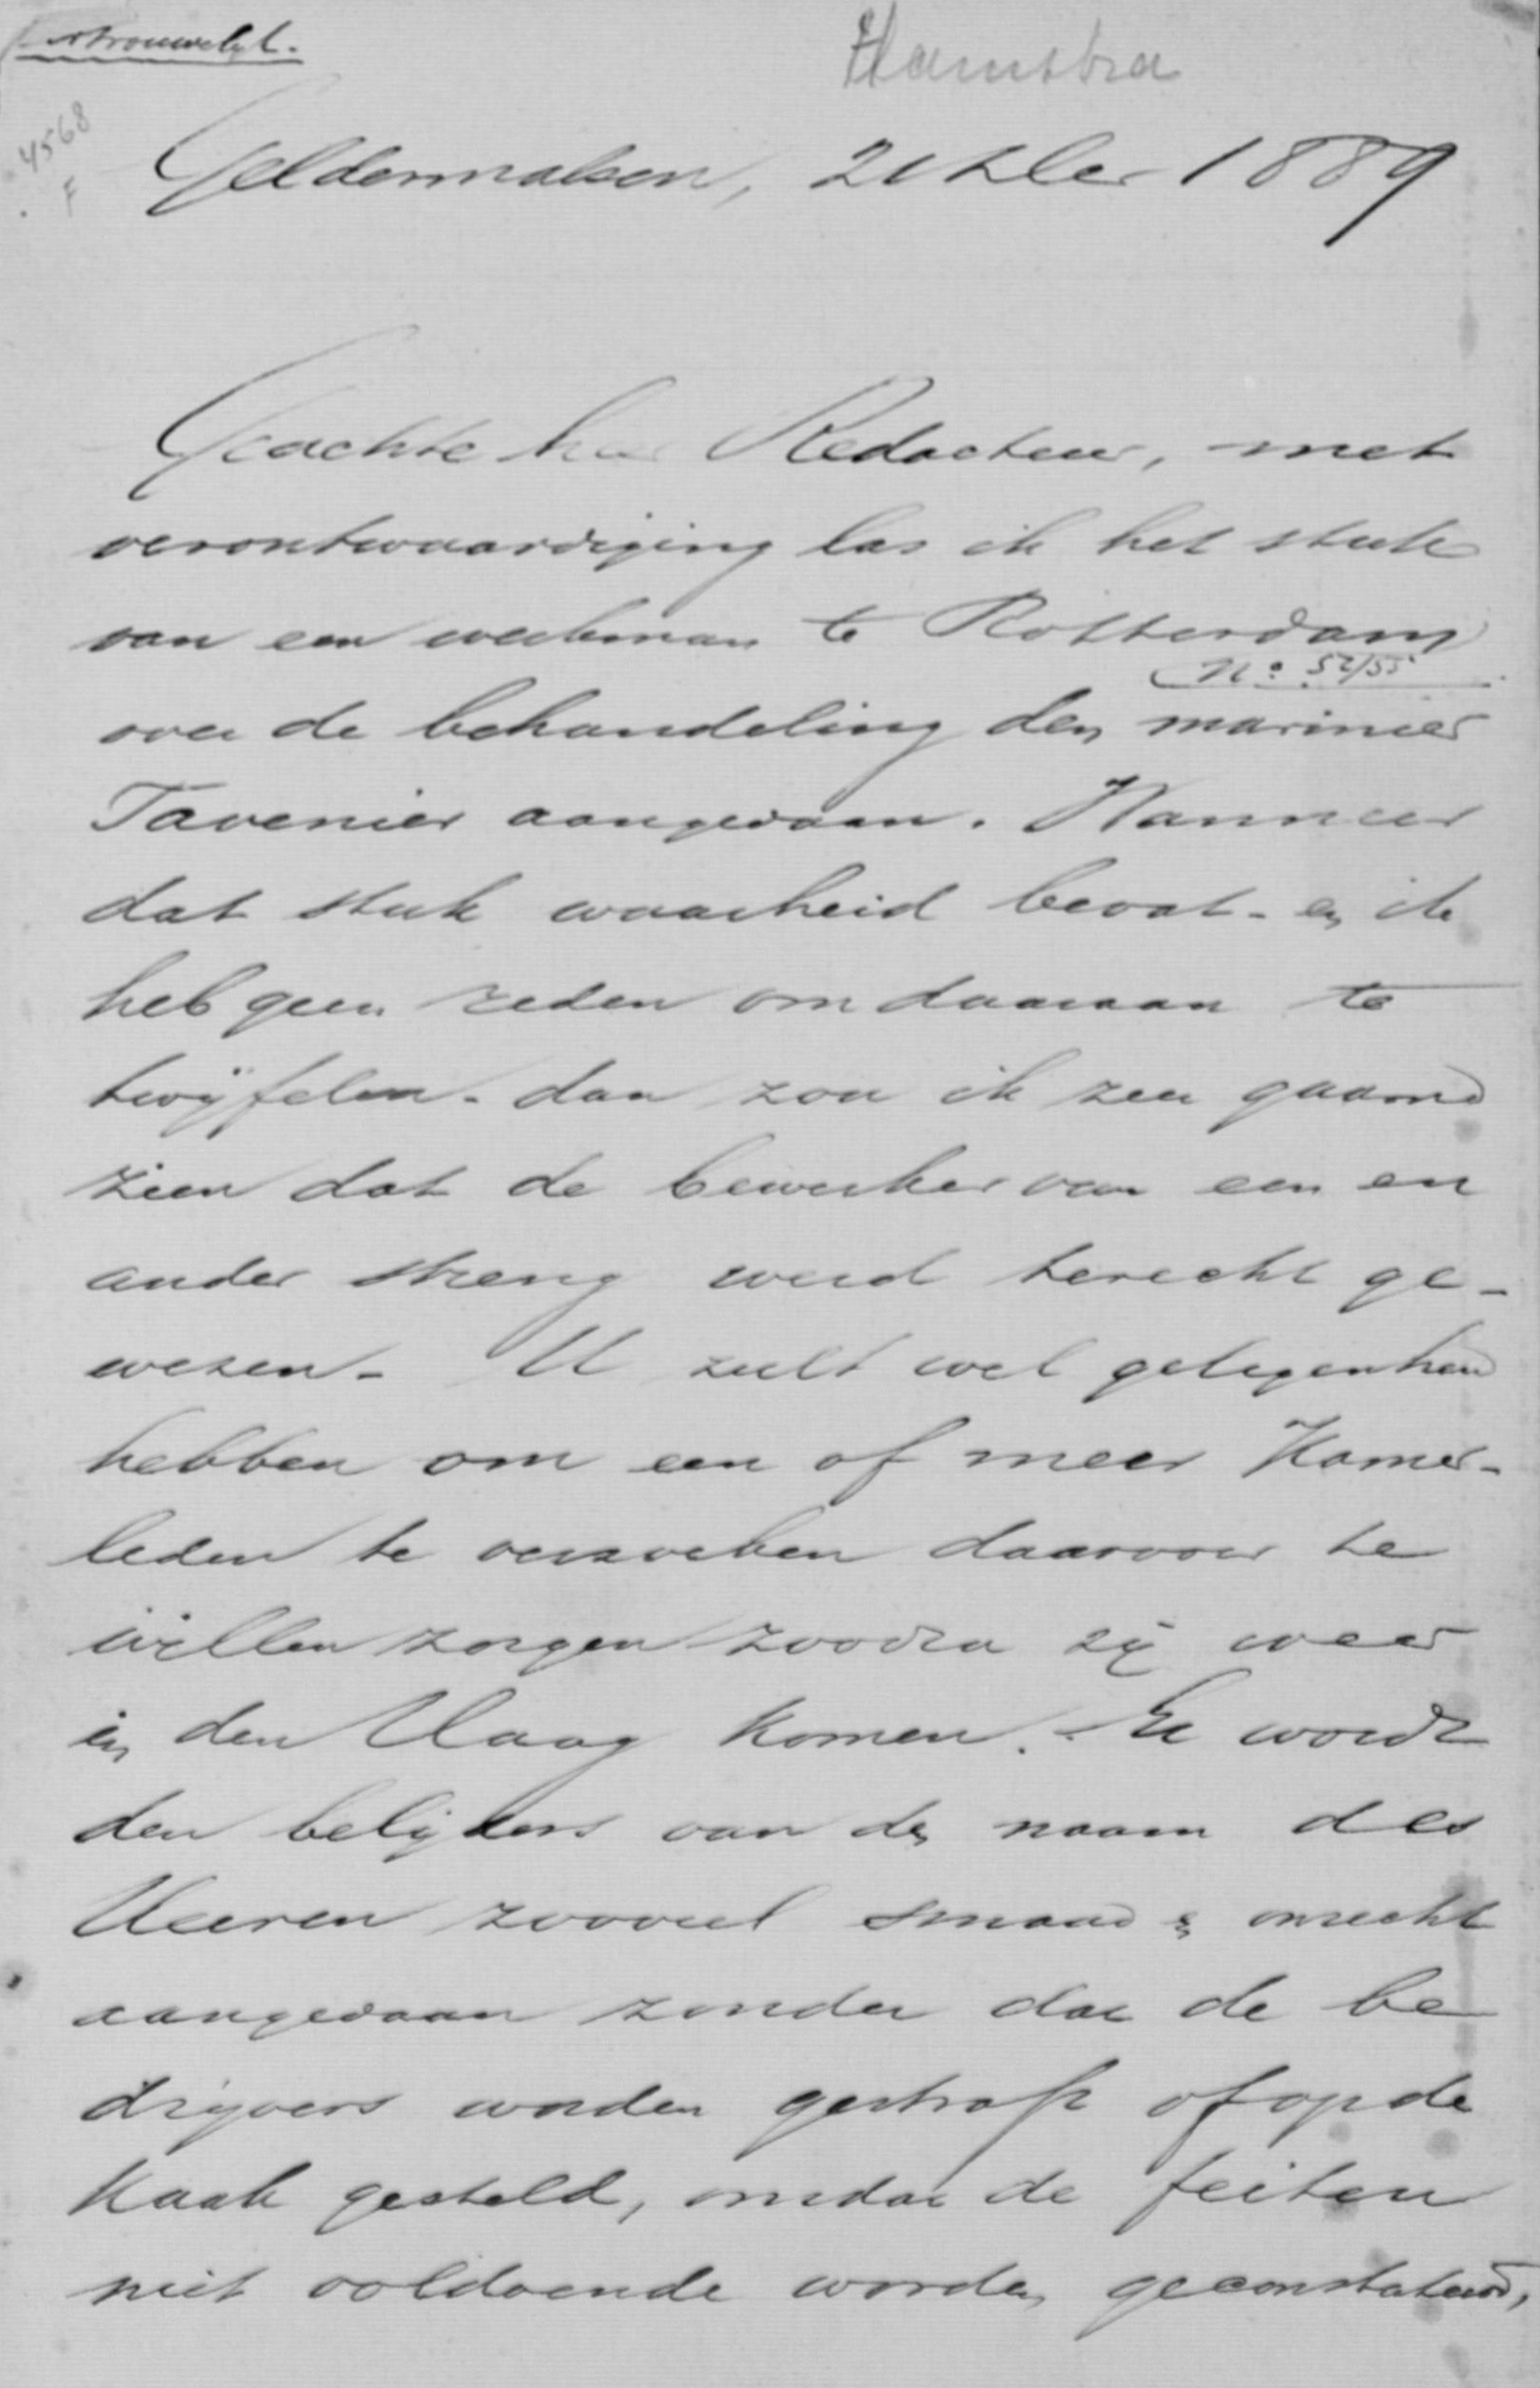 Vertrouwelijk.
Hamstra
4568
F
Geldermalsen, 21 Xber 1889
Geachte heer Redacteur, met
verontwaardiging las ik het stuk
van een werkman te Rotterdam
No. 52/55
over de behandeling den marinier
Tavenier aangedaan. Wanneer
dat stuk waarheid bevat - en ik
heb geen reden om daaraan te
twijfelen - dan zou ik zeer gaarne
zien dat de bewerker van een en
ander streng werd terecht ge-
wezen - U zult wel gelegenheid
hebben om een of meer Kamer-
leden te verzoeken daarvoor te
willen zorgen zoodra zij weer
in den Haag komen. - Er wordt
den belijders van den naam des
Heeren zooveel smaad & onrecht
aangedaan zonder dat de be
drijvers worden gestraft of op de
kaak gesteld, omdat de feiten
niet voldoende worden geconstateerd,